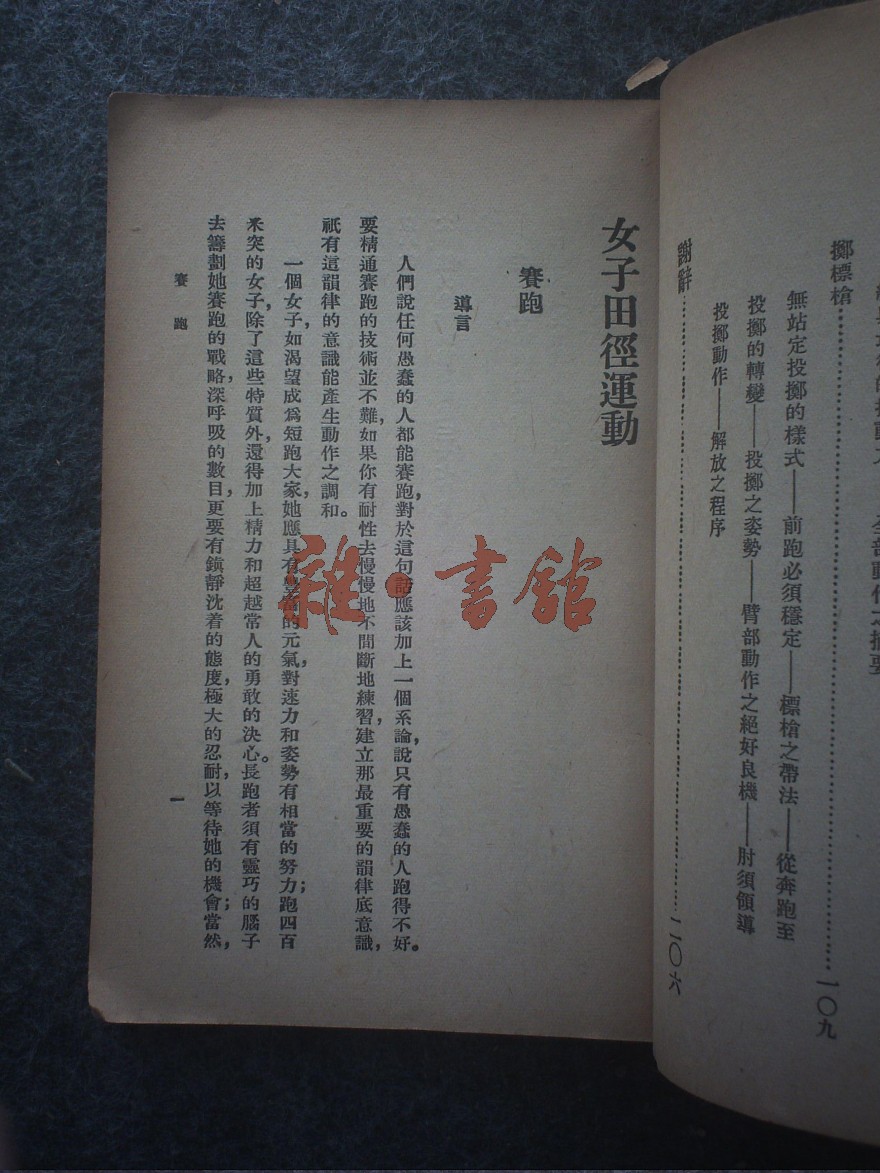 全部動作之摘要
擲標槍……………………………………一〇九
無站定投擲的樣式——前跑必須穩定——標槍之帶法——從奔跑至
投擲的轉變——投擲之姿勢——臂部動作之絕好良機——肘須領導
投擲動作——解放之程序
謝辭……………………………………二〇六
女子田徑運動
賽跑
導言
人們說任何愚蠢的人都能賽跑,對於這句話應該加上一個系論,說只有愚蠢的人跑得不好。
要精通賽跑的技術並不難,如果你有耐性去慢慢地不間斷地練習,建立那最重要的韻律底意識,
祇有這韻律的意識能產生動作之調和。
一個女子,如渴望成爲短跑大家,她應具有豐富的元氣,對速力和姿勢有相當的努力;跑四百
米突的女子,除了這些特質外,還得加上精力和超越常人的勇敢的決心。長跑者須有靈巧的腦子
去籌劃她賽跑的戰略,深呼吸的數目,更要有鎮靜沈着的態度,極大的忍耐,以等待她的機會;當然,
賽跑
一
雜·書館